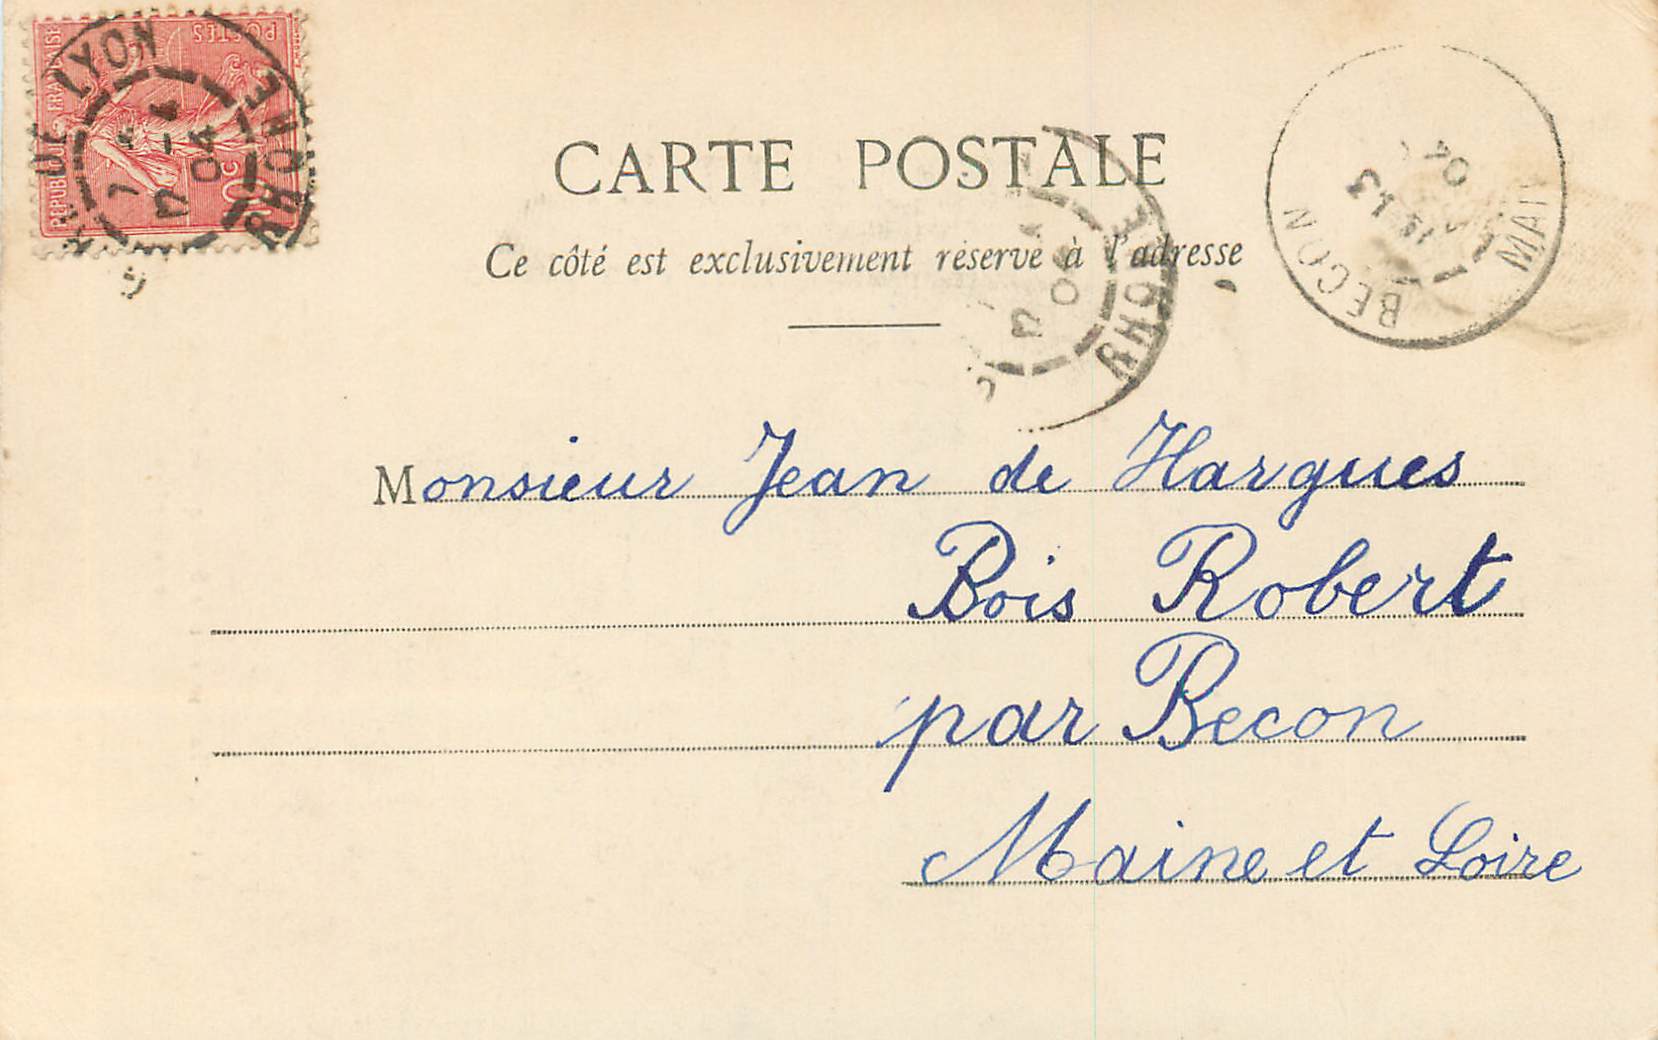 REPUBLIQUE FRANÇAISE
POSTES
LYON
RHONE
04
CARTE POSTALE
Ce côté est exclusivement réservé à l'adresse
RHONE
04
BECON
MAI
13
04
Monsieur Jean de Hargues
Bois Robert
par Becon
Maine et Loire